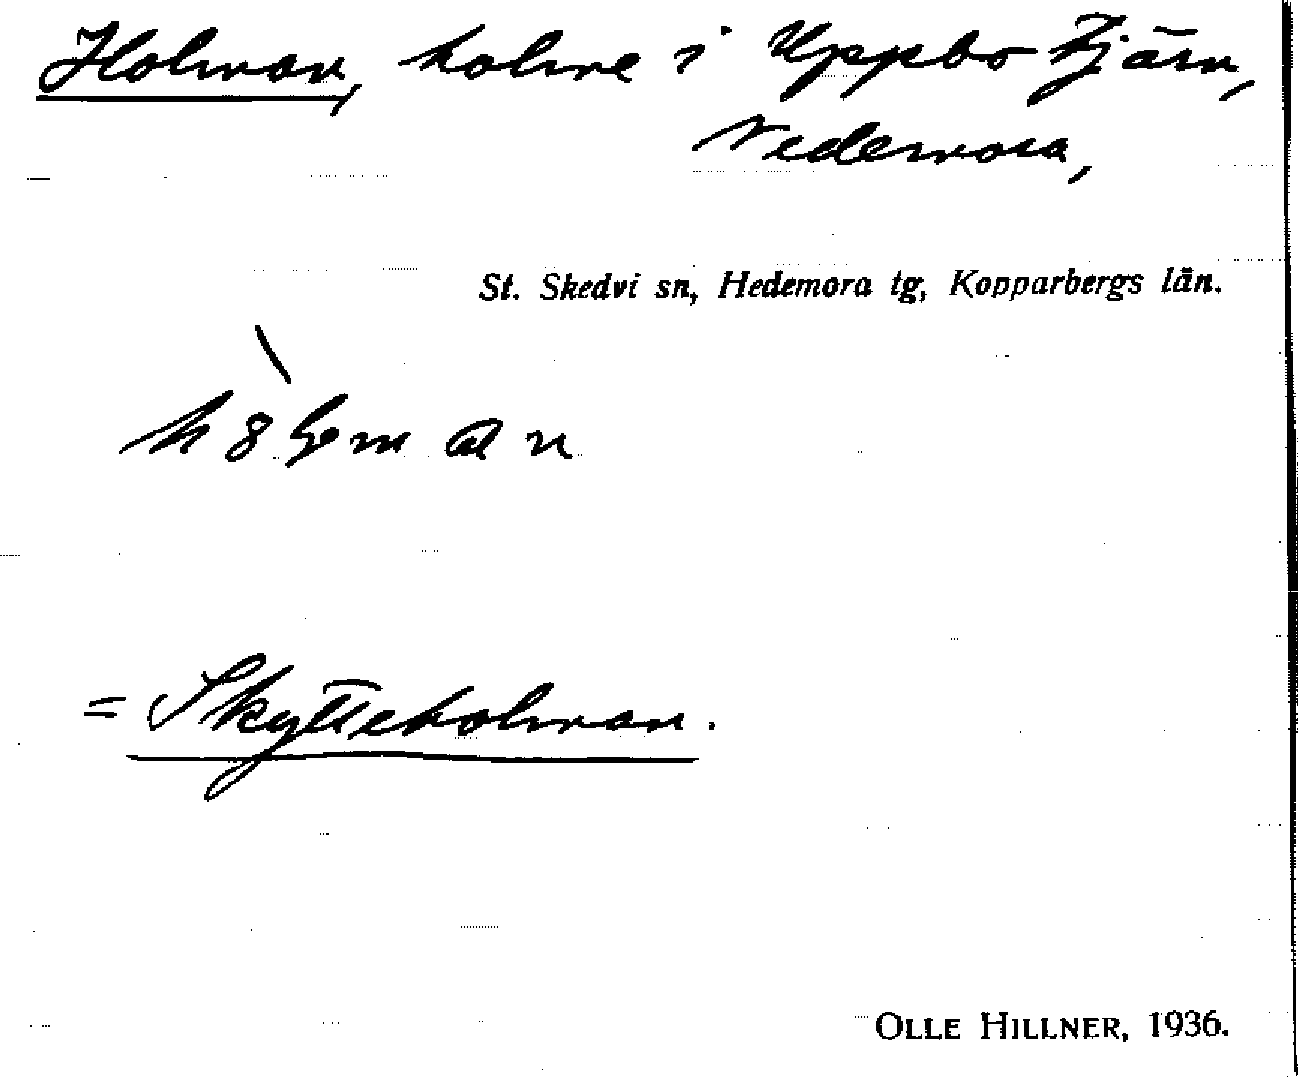 Holman, holme i Uppbo tjärn,
Vedemora,
St. Skedvi sn, Hedemora tg, Kopparbergs län.
= Skytteholman.
OLLE HILLNER, 1936.